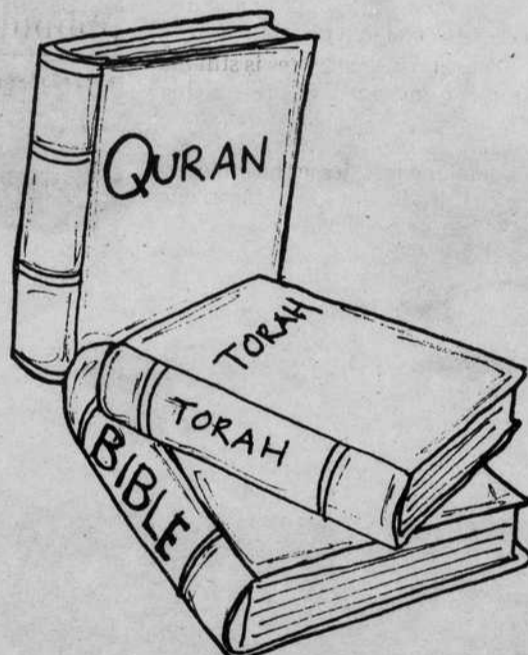 QURAN
TORAH
TORAH
BIBLE